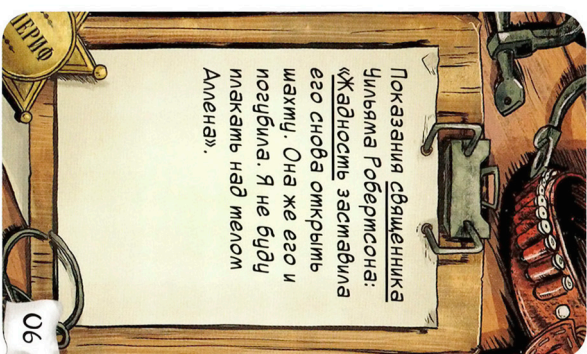 ШЕРИФ
Показания священника
Уильяма Робертсона:
«Жадность заставила
его снова открыть
шахту. Она же его и
погубила. Я не буду
плакать над телом
Аллена».
06